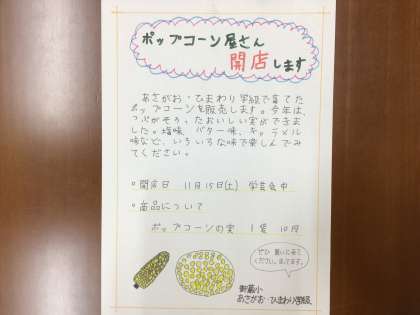 ポップコーン屋さん
開店します
あさがお・ひまわり学級で育てた
ポップコーンを販売します。今年は、
つぶがそろったおいしい実ができま
した。塩味、バター味、キャラメル
味など、いろいろな味で楽しんでみ
てください。
○開店日 11月15日(土) 学芸会中
○商品について
ポップコーンの実 1袋 10円
ぜひ 買いに来て
ください。まってます。
御蔵小
あさがお・ひまわり学級